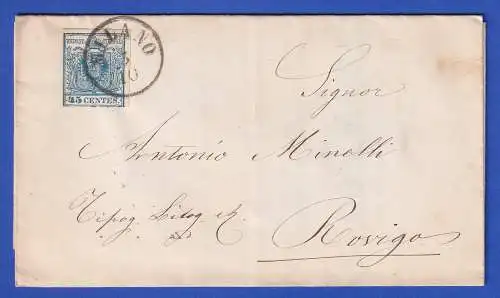 MILANO
45 CENTES.
Signor
Antonio Minelli
Tipog. Litog.
Rovigo